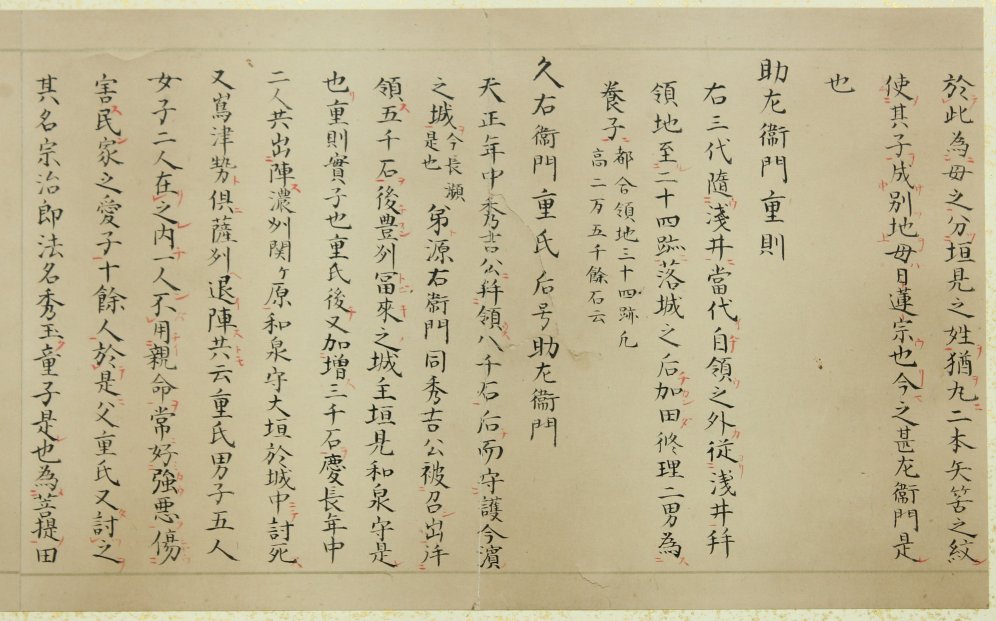 於此為毋之分垣見之姓猶丸二本矢筈之紋
使其子成別地毋日蓮宗也今之甚左衞門是
也
助左衞門重則
右三代隨淺井當代自領之外従浅井拜
領地至二十四跡落城之后加田修理二男為
養子都合領地三十四跡凡
高二万五千餘石云
久右衞門重氏后号助左衞門
天正年中秀吉公拜領八千石后而守護今濱
之城今長濵
是也弟源右衞門同秀吉公被召出拜
領五千石後豊州冨來之城主垣見和泉守是
也重則實子也重氏後又加増三千石慶長年中
二人共出陣濃州関ヶ原和泉守大垣於城中討死
又嶌津勢倶薩州退陣共云重氏男子五人
女子二人在之内一人不用親命常好強悪傷
害民家之愛子十餘人於是父重氏又討之
其名宗治即法名秀玉童子是也為菩提田